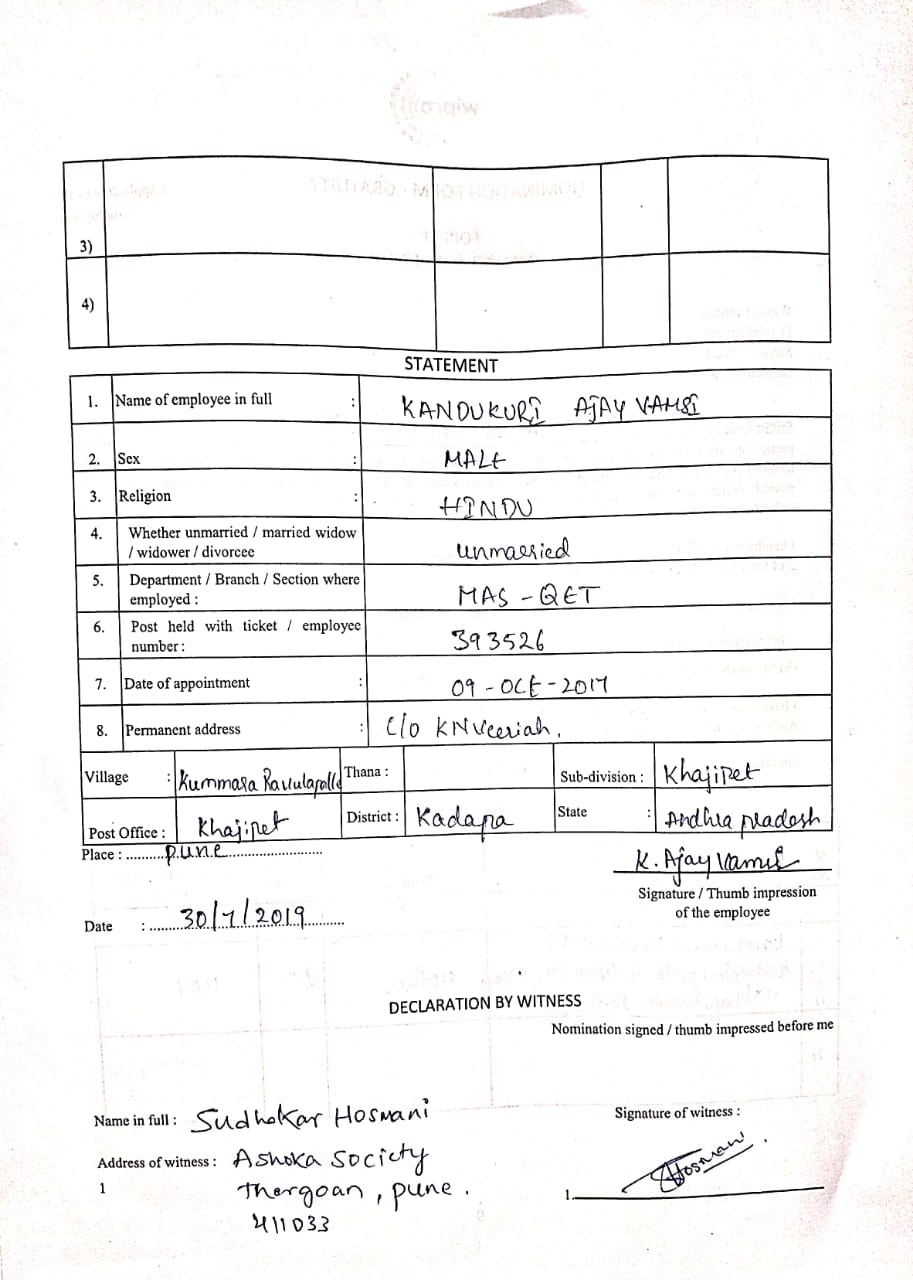 3)
4)
STATEMENT
1. Name of employee in full : KANDUKURI AJAY VAMSI
2. Sex : MALE
3. Religion : HINDU
4. Whether unmarried / married widow
/ widower / divorcee unmarried
5. Department / Branch / Section where
employed : MAS - QET
6. Post held with ticket / employee
number : 393526
7. Date of appointment : 09 - OCt - 2017
8. Permanent address : C/o KNVeeriah.
Village : Kummara Ravulapalle Thana : Sub-division : Khajipet
Post Office : Khajipet District : Kadapa State : Andhra pradesh
Place : pune
K. Ajay Vamsi
Signature / Thumb impression
of the employee
Date : 30/7/2019
DECLARATION BY WITNESS
Nomination signed / thumb impressed before me
Name in full : Sudhakar Hosmani
Signature of witness :
Address of witness : Ashoka Society
1 Thergoan, pune.
411033
1. Hosmani